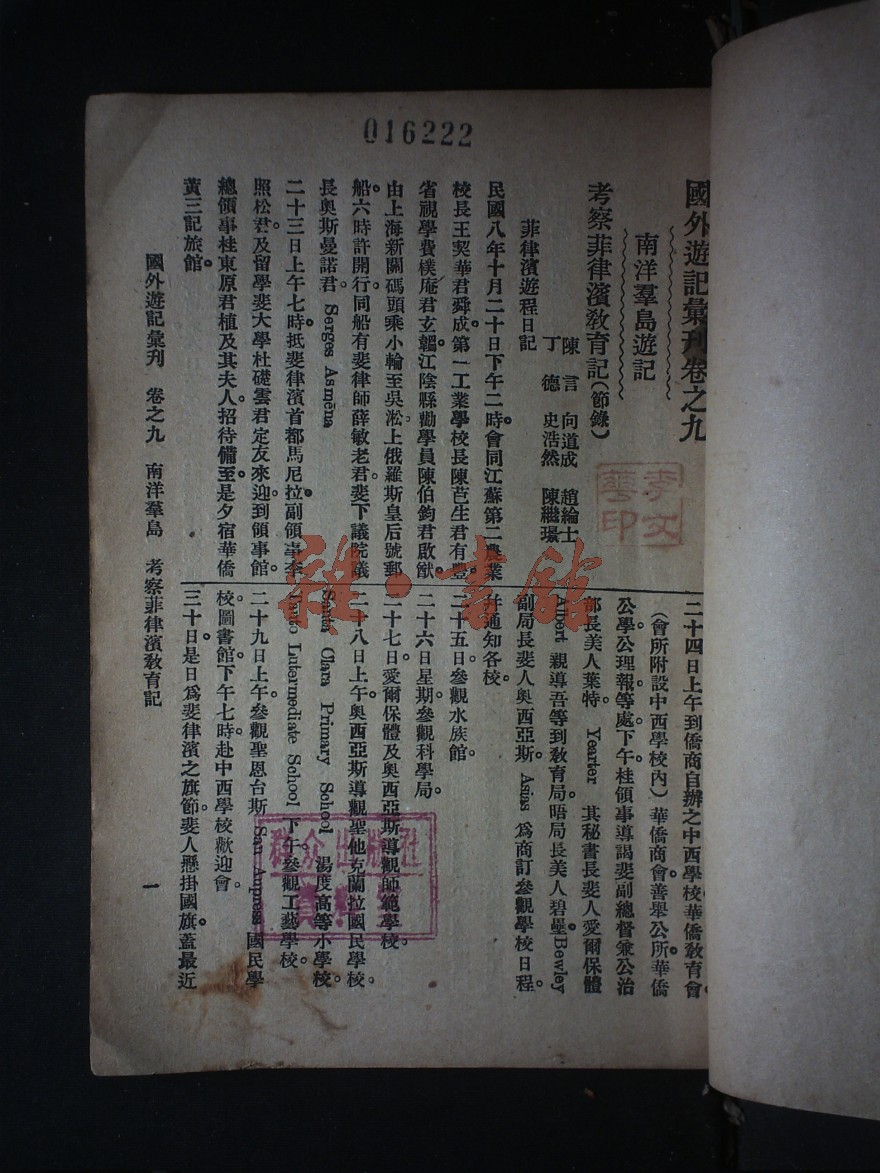 016222
國外遊記彙刊卷之九
南洋羣島遊記
考察菲律濱教育記(節錄)
陳言 向道成 趙綸士
丁德 史浩然 陳繼璟
菲律濱遊程日記
民國八年十月二十日下午二時。會同江蘇第二農業
校長王契華君舜成。第一工業學校長陳芭生君有豐
省視學費樸庵君玄韞。江陰縣勸學員陳伯鈞君啟猷
由上海新關碼頭乘小輪至吳淞。上俄羅斯皇后號郵
船。六時許開行。同船有斐律師薛敏老君。斐下議院議
長奧斯曼諾君。Serges Asmēna
二十三日上午七時。抵斐律濱首都馬尼拉。副領事李
照松君。及留學斐大學杜礎雲君定友來迎。到領事館。
總領事桂東原君植及其夫人。招待備至。是夕宿華僑
黃三記旅館。
二十四日上午到僑商自辦之中西學校華僑教育會。
(會所附設中西學校內)華僑商會。善舉公所。華僑
公學公理報等處。下午。桂領事導謁斐副總督兼公治
部長美人葉特。Yearter 其秘書長斐人愛爾保體
Albert 親導吾等到教育局。晤局長美人碧壘。Bewley
副局長斐人奧西亞斯。Asias 爲商訂參觀學校日程。
幷通知各校。
二十五日參觀水族館。
二十六日星期。參觀科學局。
二十七日。愛爾保體及奧西亞斯導觀師範學校。
二十八日上午。奧西亞斯導觀聖他克蘭拉國民學校。
Santa Clara Primary School 湯度高等小學校。
Tando Lutermediate School 下午。參觀工藝學校。
二十九日上午。參觀聖恩台斯 San Anpress 國民學
校圖書館。下午七時。赴中西學校歡迎會。
三十日。是日爲斐律濱之旗節。斐人懸掛國旗。蓋最近
國外遊記彙刊 卷之九 南洋羣島 考察菲律濱教育記 一
李文
印
群众出版社
雜·書館